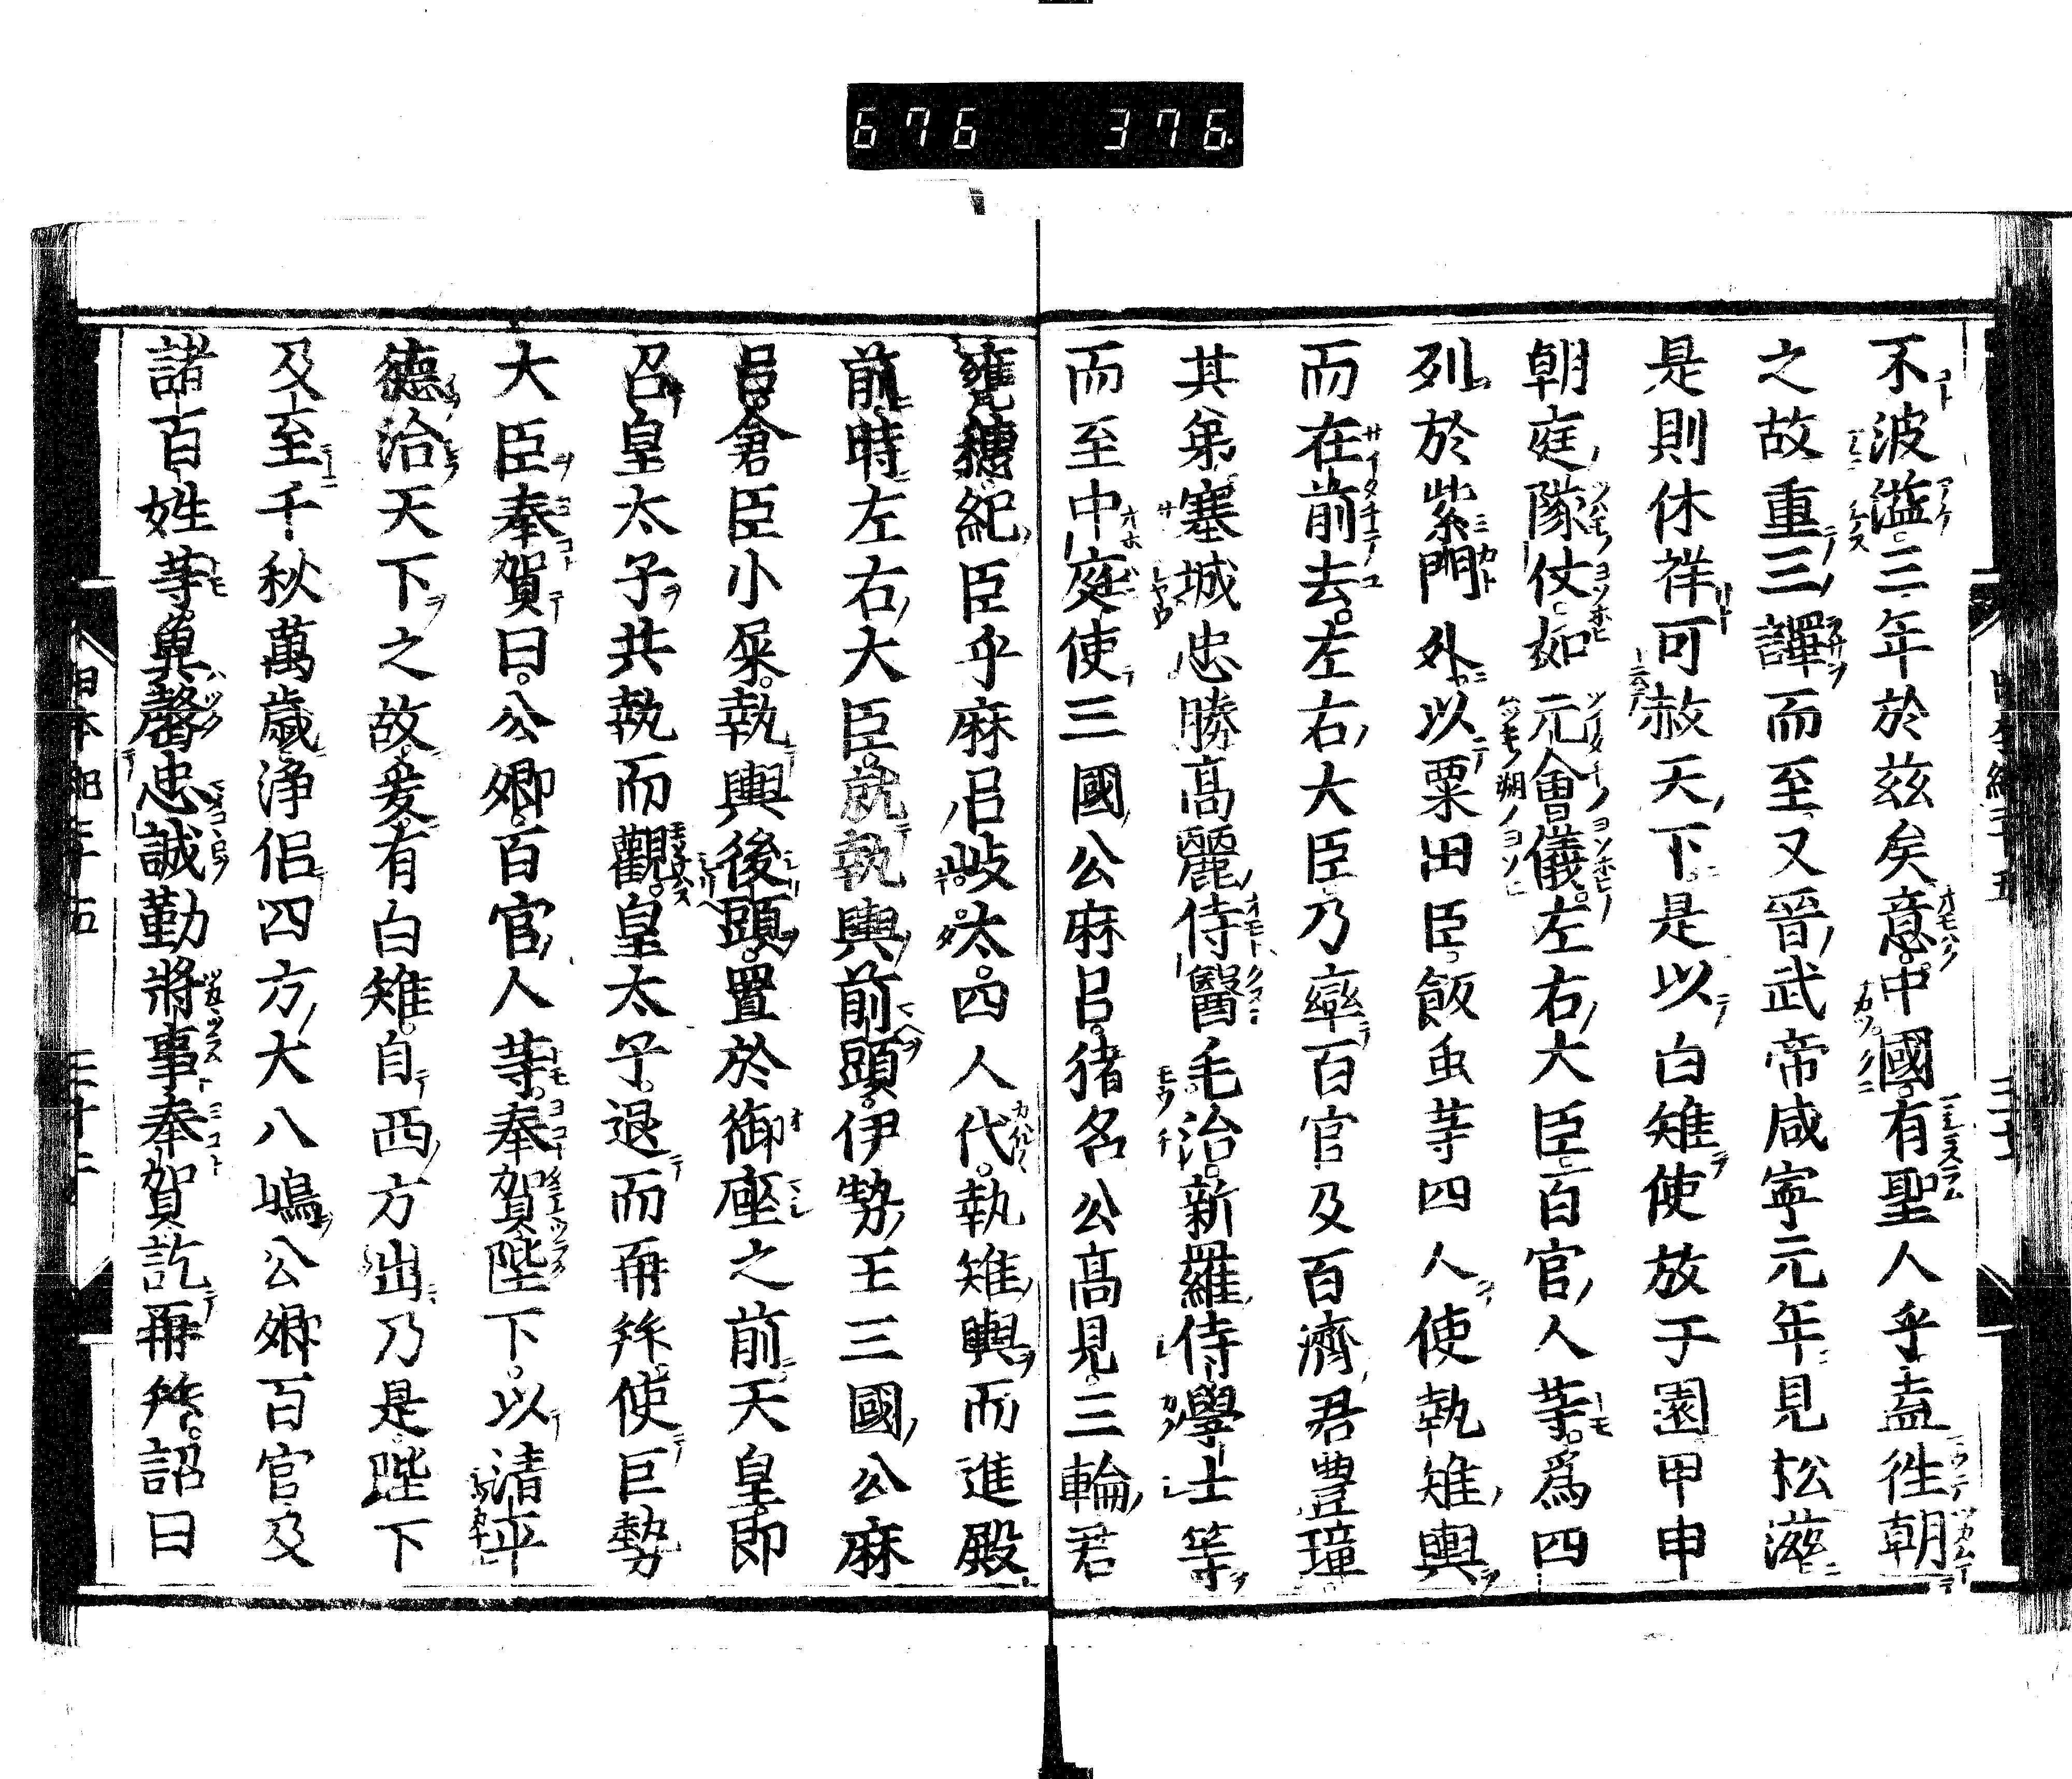 676 376.
不波溢三年於茲矣意中國有聖人乎盍徃朝
之故重三譯而至又晉武帝咸寧元年見松滋
是則休祥可赦天下是以白雉使放于園甲申
朝庭隊仗如元會儀左右大臣百官人等爲四
列於紫門外以粟田臣飯虫等四人使執雉輿
而在前去左右大臣乃率百官及百濟君豊璋
其弟塞城忠勝高麗侍醫毛治新羅侍學士等
而至中庭使三國公麻呂猪名公高見三輪君
甕穗紀臣乎麻呂岐太四人代執雉輿而進殿
前時左右大臣就執輿前頭伊勢王三國公麻
呂倉臣小屎執輿後頭置於御座之前天皇即
召皇太子共執而觀皇太子退而再拜使巨勢
大臣奉賀曰公卿百官人等奉賀陛下以清平
德治天下之故爰有白雉自西方出乃是陛下
及至千秋萬歲浄侶四方大八嶋公卿百官及
諸百姓等兾罄忠誠勤將事奉賀訖再拜詔曰